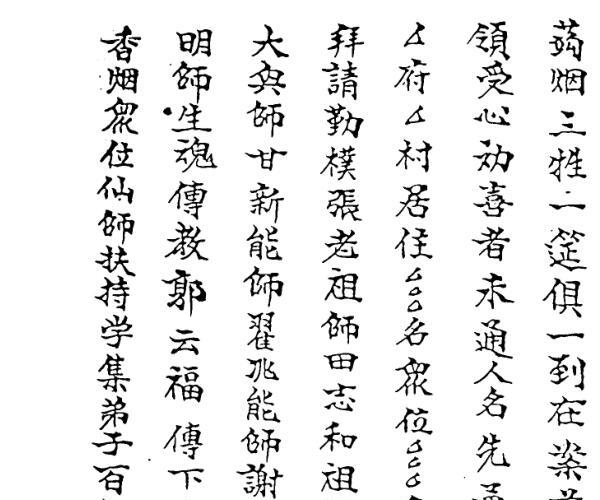 烟三牲一筵俱一到在案
領受心劝喜者未通人名先
厶府厶村居住厶厶厶名衆位厶厶厶
拜請勤樸張老祖師田志和祖
大奐師甘新能師翟兆能師謝
明師生魂傳教郭云福傳下
香烟衆位仙師扶持学集弟子百